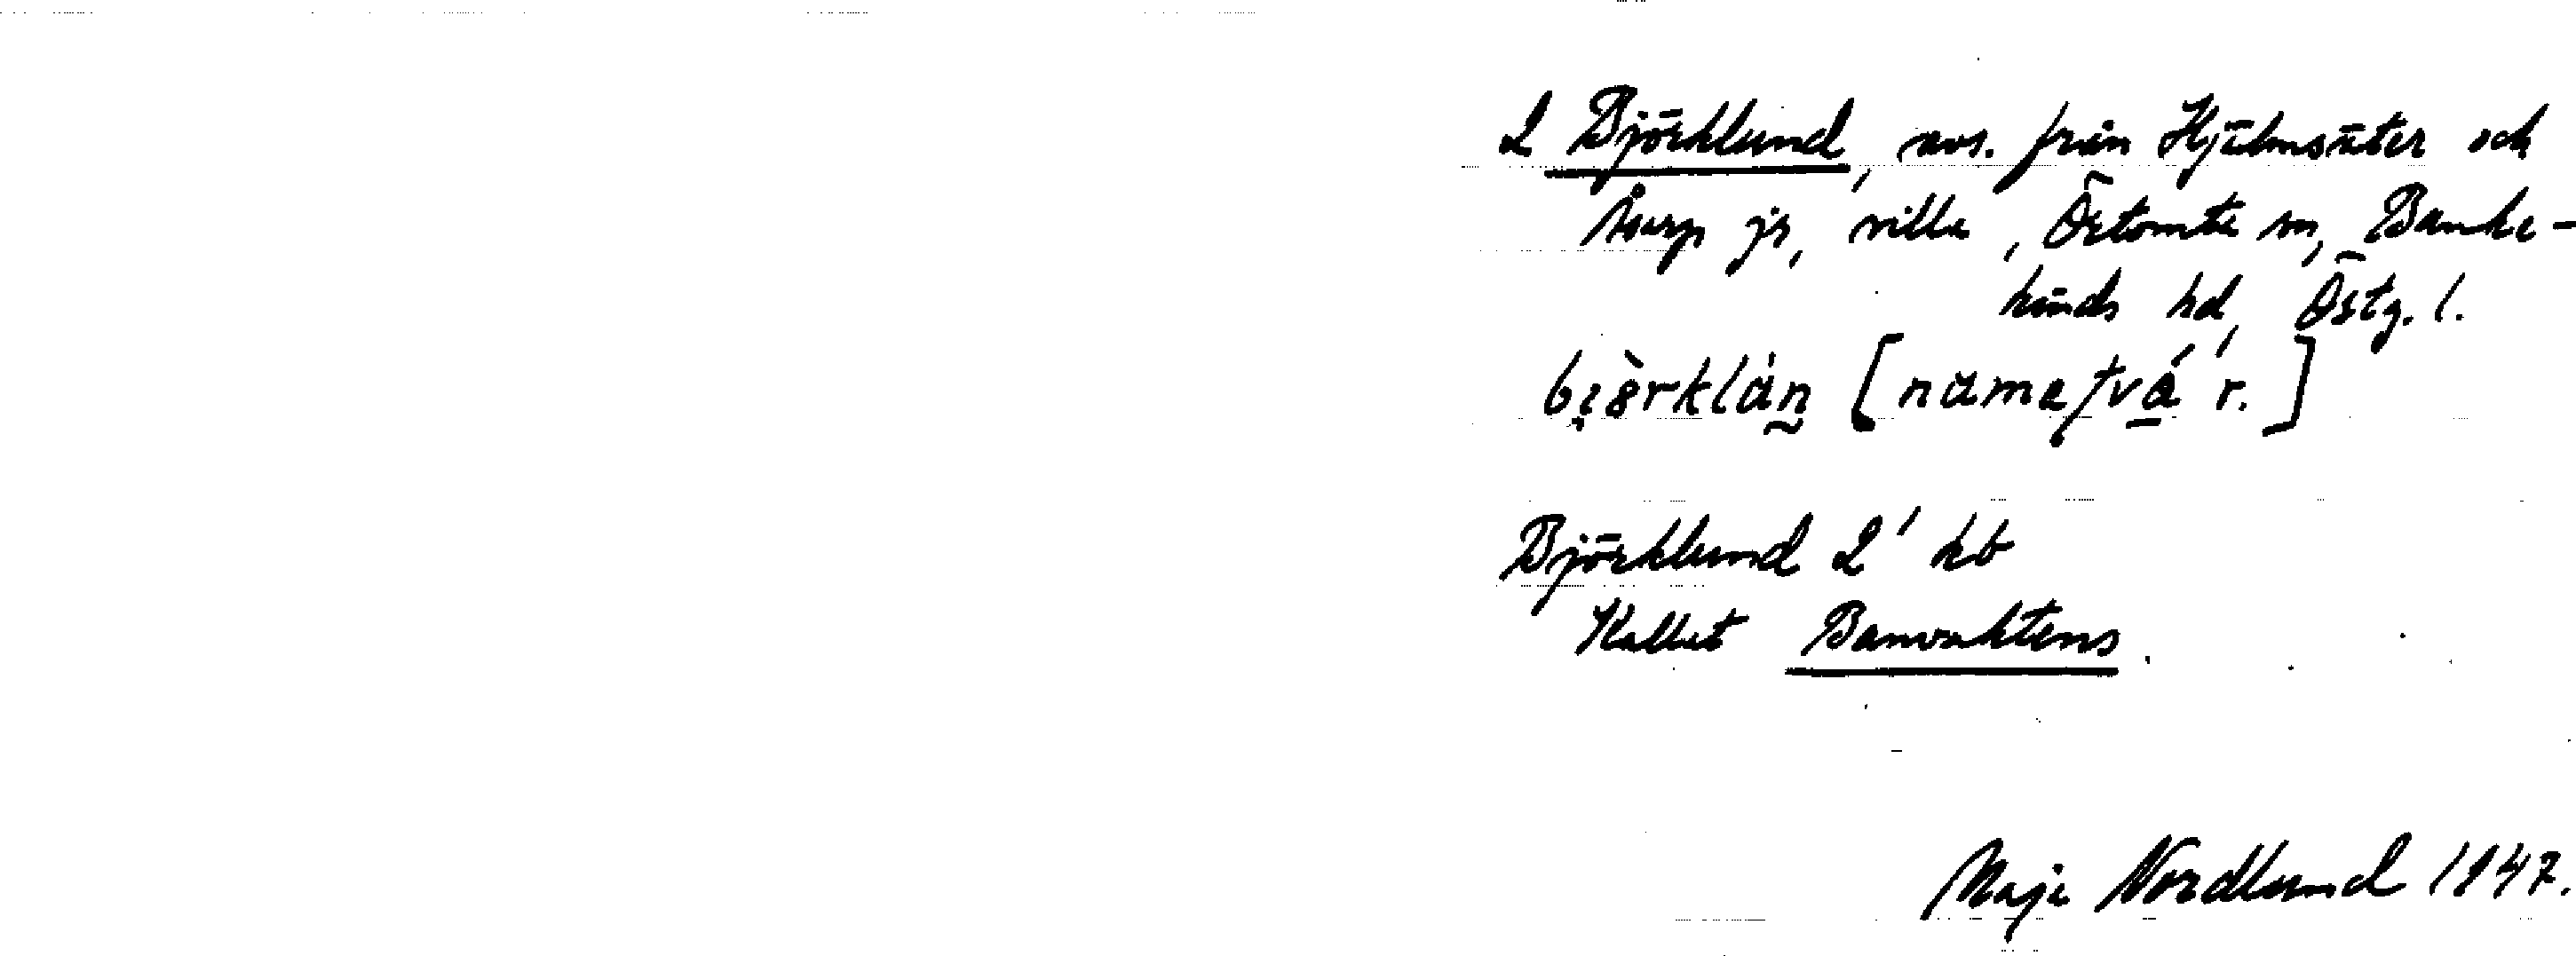 2 Björklund, avs. från Hjälmsäter och
Åsarp js, villa, Örtomta sn, Banke-
kinds hd, Östg. l.
bi̯örklán [näme, tvá r.]
Björklund 2' kb
Kallat Banvaktens.
Maja Nordlund 1947.